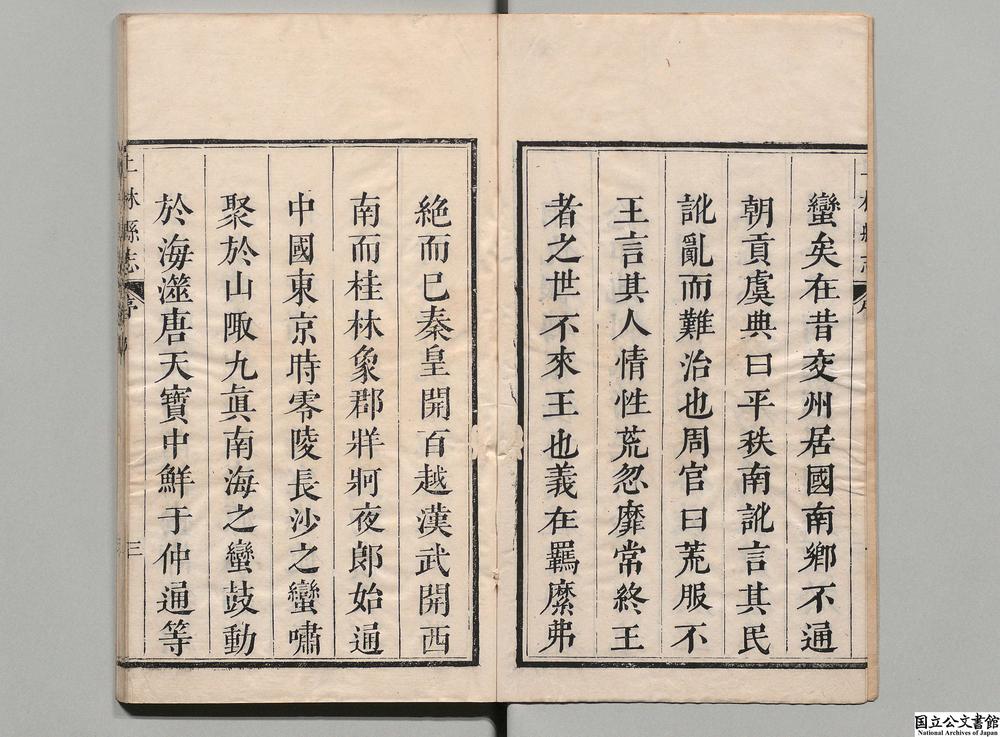 蠻矣在昔交州居國南鄉不通
朝貢虞典曰平秩南訛言其民
訛亂而難治也周官曰荒服不
王言其人情性荒忽靡常終王
者之世不來王也義在羈縻弗
絶而已秦皇開百越漢武開西
南而桂林象郡牂牁夜郎始通
中國東京時零陵長沙之蠻嘯
聚於山陬九眞南海之蠻鼓動
於海澨唐天寶中鮮于仲通等
上林縣志
序
三
国立公文書館
National Archives of Japan